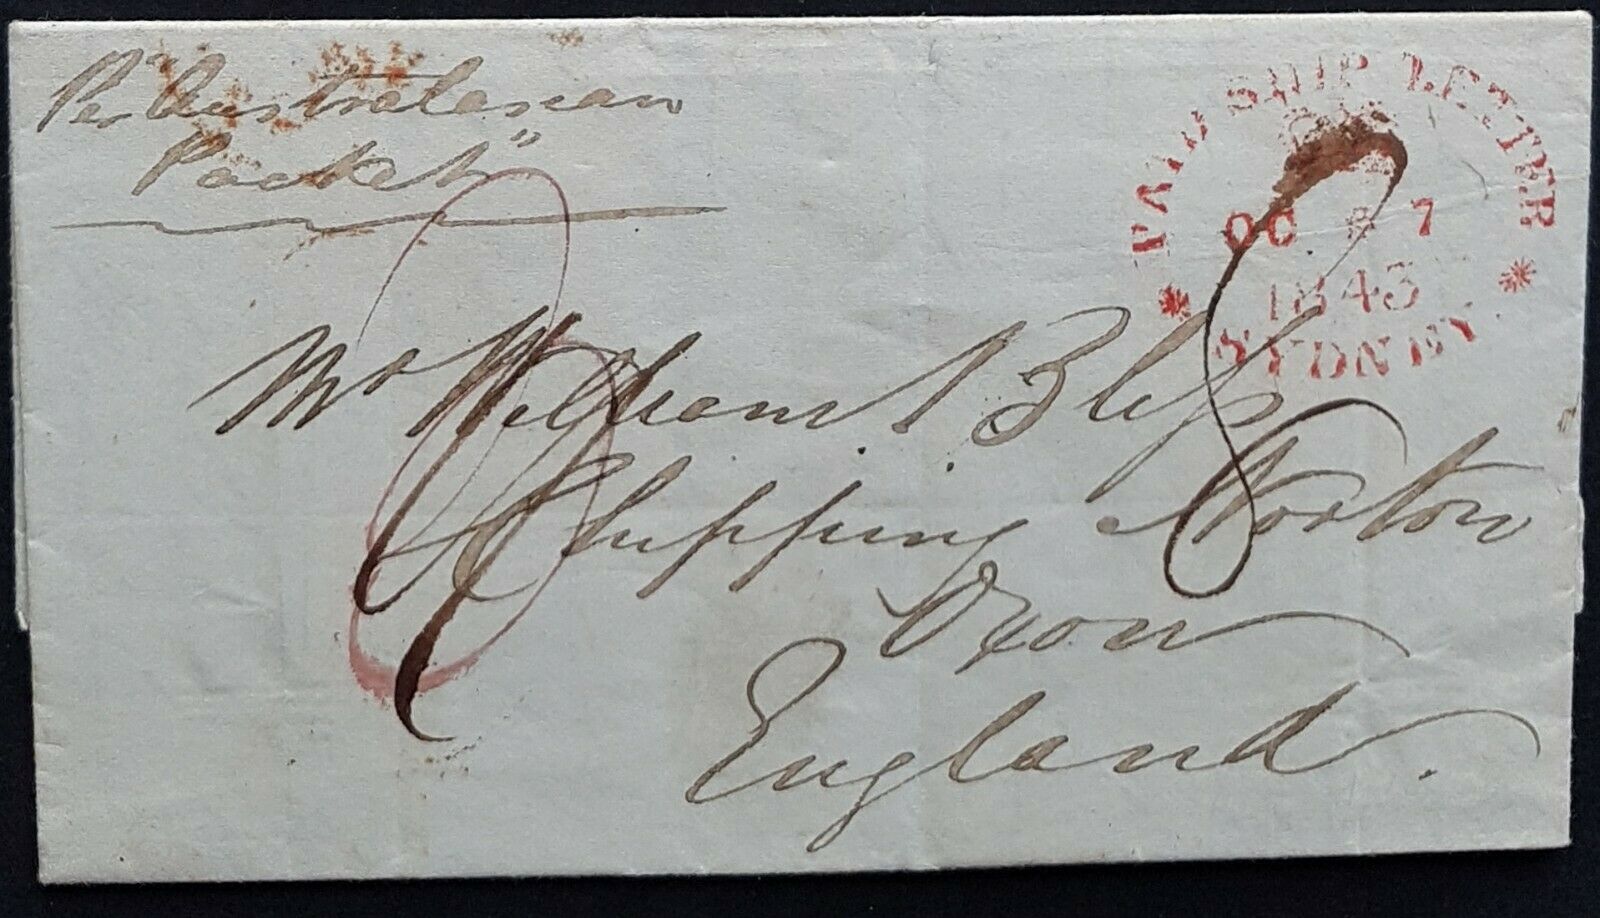 Per "Australasian
Packet"
PAID SHIP LETTER
OC 7
1843
SYDNEY
8
Mr William Bliss
Chipping Norton
Oxon
England.